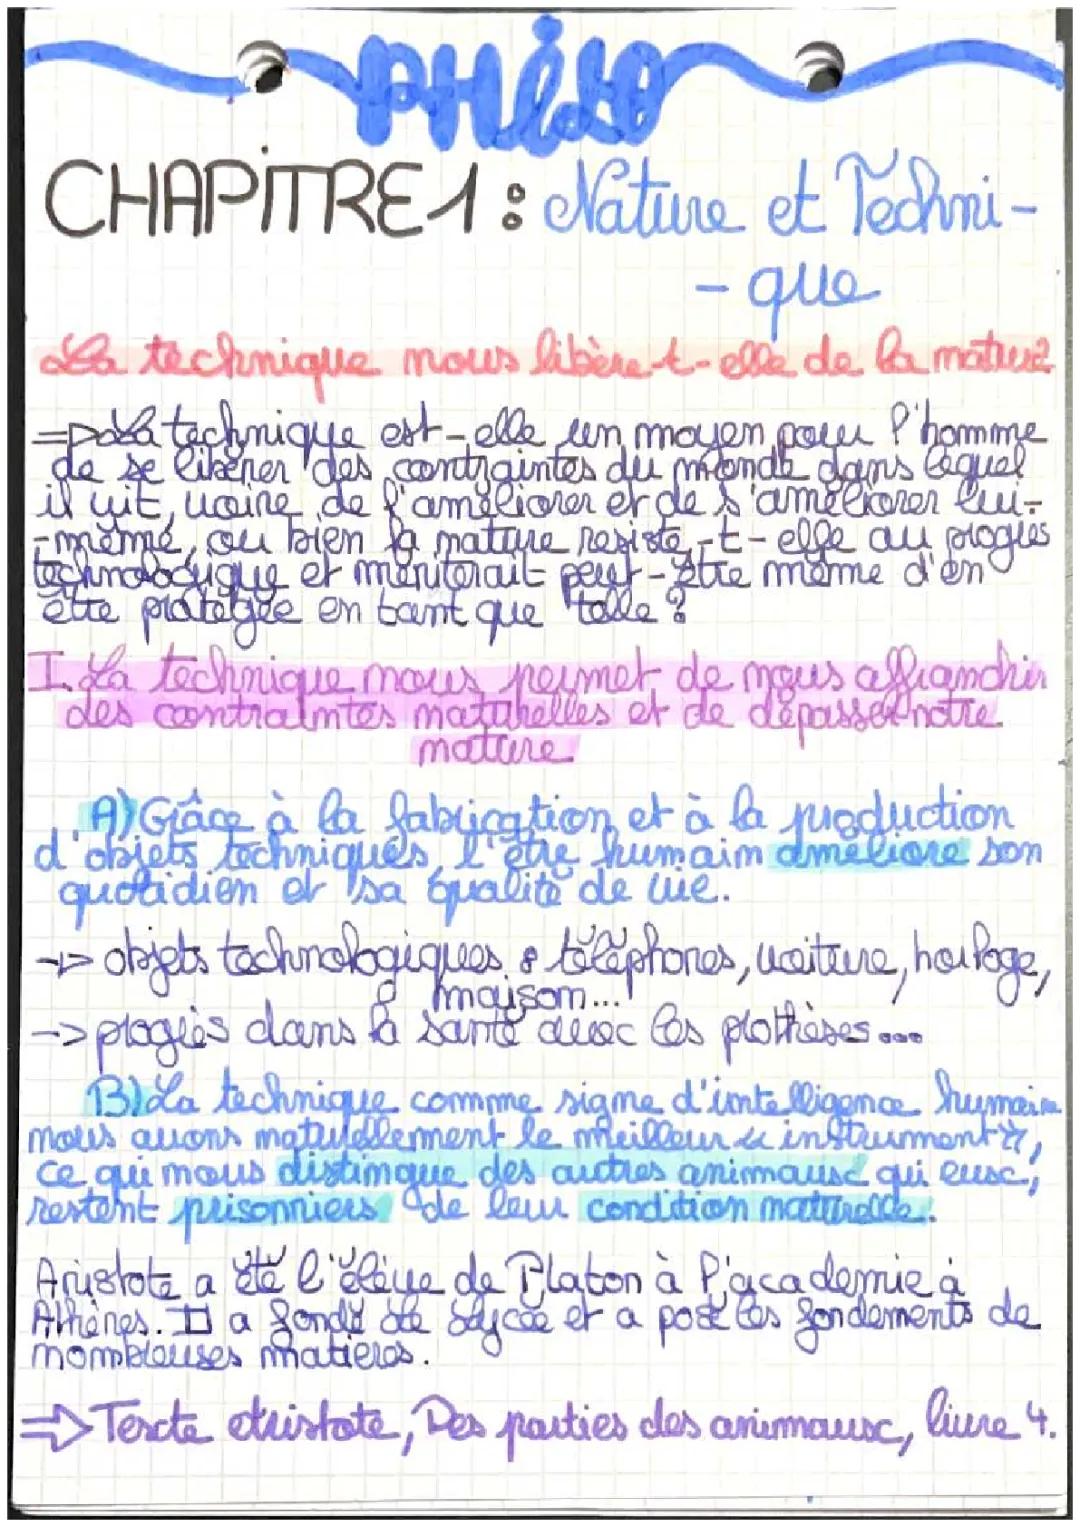 PHILO
CHAPITRE 1 : Nature et Techni-
-que
La technique nous libère-t-elle de la nature?
=> La technique est-elle un moyen pour l'homme
de se libérer des contraintes du monde dans lequel
il vit, voire de l'améliorer et de s'améliorer lui-
-même, ou bien la nature resiste-t-elle au progrès
technologique et mériterait peut-être même d'en
être protégée en tant que telle ?
I. La technique nous permet de nous affranchir
des contraintes naturelles et de dépasser notre
nature
A) Grâce à la fabrication et à la production
d'objets techniques, l'être humain améliore son
quotidien et sa qualité de vie.
-> objets technologiques : téléphones, voiture, horloge,
maison...
-> progrès dans la santé avec les prothèses...
B) La technique comme signe d'intelligence humaine
nous avons naturellement le meilleur « instrument »,
ce qui nous distingue des autres animaux qui eux,
restent prisonniers de leur condition naturelle.
Aristote a été l'élève de Platon à l'académie à
Athènes. Il a fondé le Lycée et a posé les fondements de
nombreuses matières.
=> Texte Aristote, Des parties des animaux, livre 4.